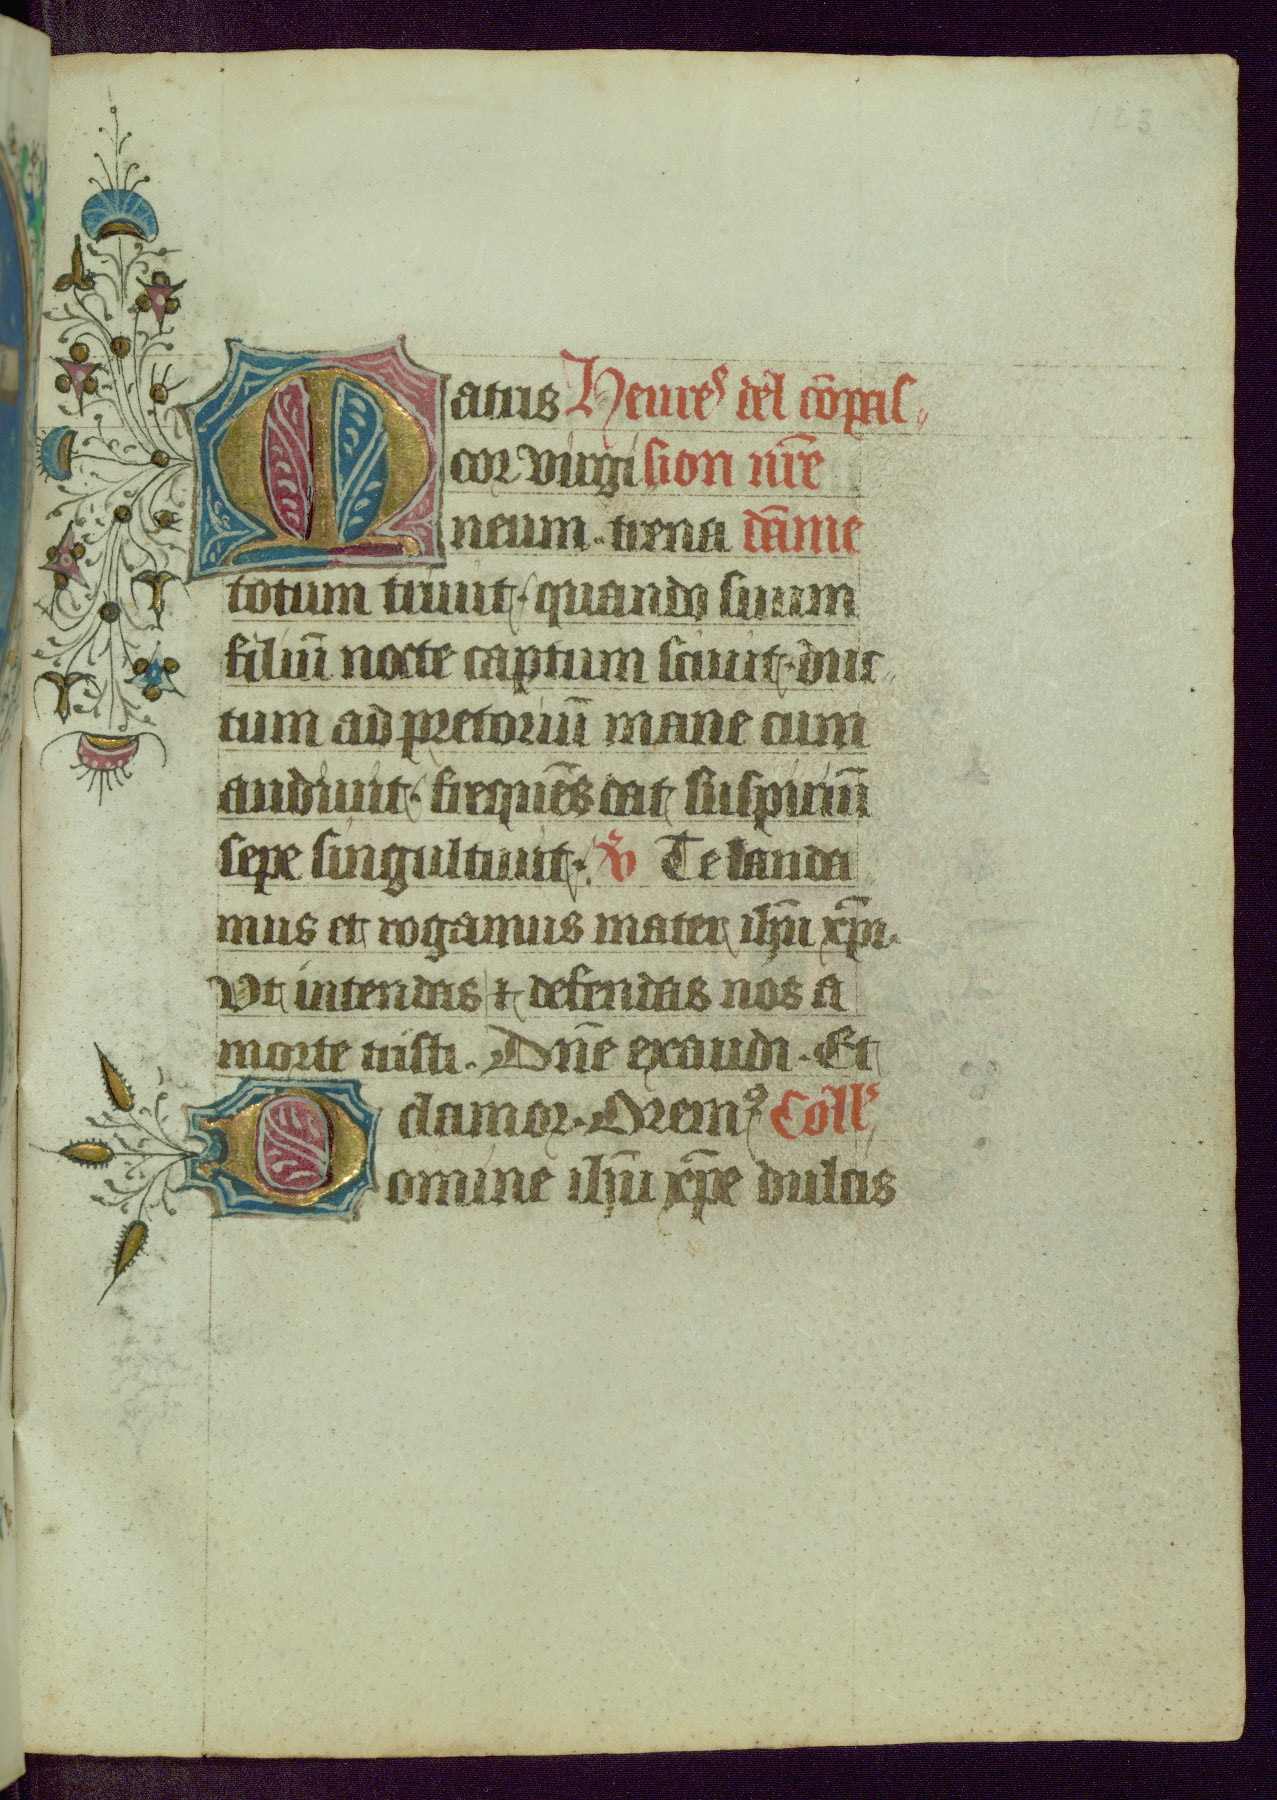 Matris Heures del cōpas
cor virgi sion nr̄e
neum. trena dāme
totum triuit. quando suum
filiū nocte captum sciuit. duc
tum ad pretoriū mane cum
audiuit. frequēs dat suspiriū
sepe singultiuit. v̄ Te lauda
mus et rogamus mater ihū xp̄i.
Vt intendas ⁊ defendas nos a
morte tristi. Dn̄e exaudi. Et
clamor. Oremꝰ Coll'
Domine ihū xp̄e dulcis